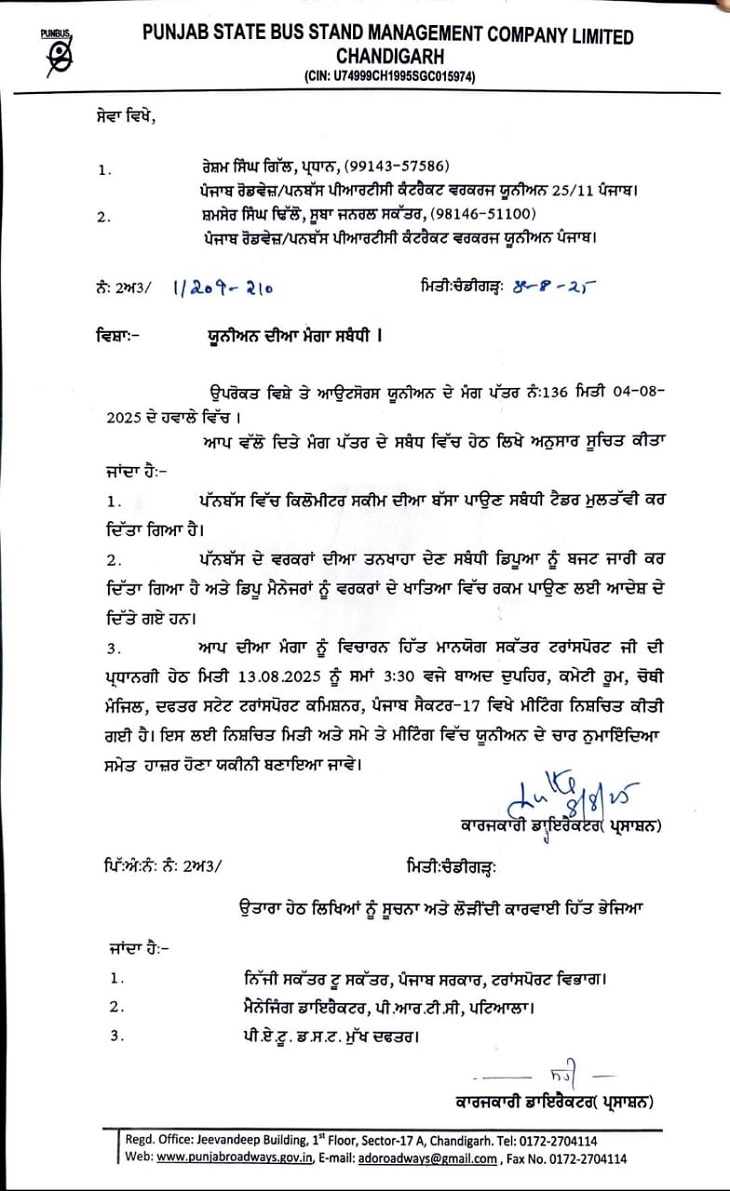 PUNBUS
PUNJAB STATE BUS STAND MANAGEMENT COMPANY LIMITED
CHANDIGARH
(CIN: U74999CH1995SGC015974)
ਸੇਵਾ ਵਿਖੇ,
1. ਰੇਸ਼ਮ ਸਿੰਘ ਗਿੱਲ, ਪ੍ਰਧਾਨ, (99143-57586)
ਪੰਜਾਬ ਰੋਡਵੇਜ਼/ਪਨਬੱਸ ਪੀਆਰਟੀਸੀ ਕੰਟਰੈਕਟ ਵਰਕਰਜ ਯੂਨੀਅਨ 25/11 ਪੰਜਾਬ।
2. ਸ਼ਮਸੇਰ ਸਿੰਘ ਢਿੱਲੋਂ, ਸੂਬਾ ਜਨਰਲ ਸਕੱਤਰ, (98146-51100)
ਪੰਜਾਬ ਰੋਡਵੇਜ਼/ਪਨਬੱਸ ਪੀਆਰਟੀਸੀ ਕੰਟਰੈਕਟ ਵਰਕਰਜ ਯੂਨੀਅਨ ਪੰਜਾਬ।
ਨੰ: 2ਅ3/ 1/209-210 ਮਿਤੀ:ਚੰਡੀਗੜ੍ਹ: 8-8-25
ਵਿਸ਼ਾ:- ਯੂਨੀਅਨ ਦੀਆ ਮੰਗਾ ਸਬੰਧੀ ।
ਉਪਰੋਕਤ ਵਿਸ਼ੇ ਤੇ ਆਉਟਸੋਰਸ ਯੂਨੀਅਨ ਦੇ ਮੰਗ ਪੱਤਰ ਨੰ:136 ਮਿਤੀ 04-08-
2025 ਦੇ ਹਵਾਲੇ ਵਿੱਚ ।
ਆਪ ਵੱਲੋ ਦਿਤੇ ਮੰਗ ਪੱਤਰ ਦੇ ਸਬੰਧ ਵਿੱਚ ਹੇਠ ਲਿਖੇ ਅਨੁਸਾਰ ਸੂਚਿਤ ਕੀਤਾ
ਜਾਂਦਾ ਹੈ:-
1. ਪੱਨਬੱਸ ਵਿੱਚ ਕਿਲੋਮੀਟਰ ਸਕੀਮ ਦੀਆ ਬੱਸਾ ਪਾਉਣ ਸਬੰਧੀ ਟੈਡਰ ਮੁਲਤੱਵੀ ਕਰ
ਦਿੱਤਾ ਗਿਆ ਹੈ।
2. ਪੱਨਬੱਸ ਦੇ ਵਰਕਰਾਂ ਦੀਆ ਤਨਖਾਹਾ ਦੇਣ ਸਬੰਧੀ ਡਿਪੂਆ ਨੂੰ ਬਜਟ ਜਾਰੀ ਕਰ
ਦਿੱਤਾ ਗਿਆ ਹੈ ਅਤੇ ਡਿਪੂ ਮੈਨੇਜਰਾਂ ਨੂੰ ਵਰਕਰਾਂ ਦੇ ਖਾਤਿਆ ਵਿੱਚ ਰਕਮ ਪਾਉਣ ਲਈ ਆਦੇਸ਼ ਦੇ
ਦਿੱਤੇ ਗਏ ਹਨ।
3. ਆਪ ਦੀਆ ਮੰਗਾ ਨੂੰ ਵਿਚਾਰਨ ਹਿੱਤ ਮਾਨਯੋਗ ਸਕੱਤਰ ਟਰਾਂਸਪੋਰਟ ਜੀ ਦੀ
ਪ੍ਰਧਾਨਗੀ ਹੇਠ ਮਿਤੀ 13.08.2025 ਨੂੰ ਸਮਾਂ 3:30 ਵਜੇ ਬਾਅਦ ਦੁਪਹਿਰ, ਕਮੇਟੀ ਰੂਮ, ਚੋਥੀ
ਮੰਜਿਲ, ਦਫਤਰ ਸਟੇਟ ਟਰਾਂਸਪੋਰਟ ਕਮਿਸ਼ਨਰ, ਪੰਜਾਬ ਸੈਕਟਰ-17 ਵਿਖੇ ਮੀਟਿੰਗ ਨਿਸ਼ਚਿਤ ਕੀਤੀ
ਗਈ ਹੈ। ਇਸ ਲਈ ਨਿਸ਼ਚਿਤ ਮਿਤੀ ਅਤੇ ਸਮੇ ਤੇ ਮੀਟਿੰਗ ਵਿੱਚ ਯੂਨੀਅਨ ਦੇ ਚਾਰ ਨੁਮਾਇੰਦਿਆ
ਸਮੇਤ ਹਾਜ਼ਰ ਹੋਣਾ ਯਕੀਨੀ ਬਣਾਇਆ ਜਾਵੇ।
8/8/25
ਕਾਰਜਕਾਰੀ ਡਾਇਰੈਕਟਰ( ਪ੍ਰਸਾਸ਼ਨ)
ਪਿੱ:ਅੰ:ਨੰ: ਨੰ: 2ਅ3/ ਮਿਤੀ:ਚੰਡੀਗੜ੍ਹ:
ਉਤਾਰਾ ਹੇਠ ਲਿਖਿਆਂ ਨੂੰ ਸੂਚਨਾ ਅਤੇ ਲੋੜੀਂਦੀ ਕਾਰਵਾਈ ਹਿੱਤ ਭੇਜਿਆ
ਜਾਂਦਾ ਹੈ:-
1. ਨਿੱਜੀ ਸਕੱਤਰ ਟੂ ਸਕੱਤਰ, ਪੰਜਾਬ ਸਰਕਾਰ, ਟਰਾਂਸਪੋਰਟ ਵਿਭਾਗ।
2. ਮੈਨੇਜਿੰਗ ਡਾਇਰੈਕਟਰ, ਪੀ.ਆਰ.ਟੀ.ਸੀ, ਪਟਿਆਲਾ।
3. ਪੀ.ਏ.ਟੂ. ਡ.ਸ.ਟ. ਮੁੱਖ ਦਫਤਰ।
ਸਹੀ
ਕਾਰਜਕਾਰੀ ਡਾਇਰੈਕਟਰ( ਪ੍ਰਸਾਸ਼ਨ)
Regd. Office: Jeevandeep Building, 1st Floor, Sector-17 A, Chandigarh. Tel: 0172-2704114
Web: www.punjabroadways.gov.in, E-mail: adoroadways@gmail.com , Fax No. 0172-2704114